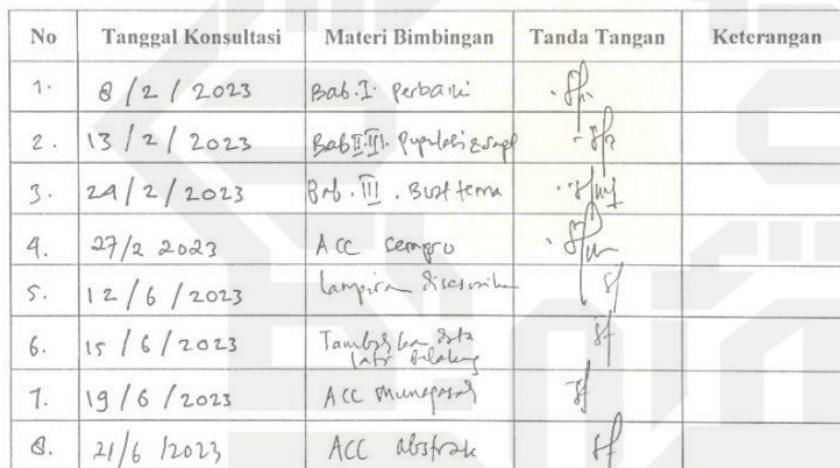 No Tanggal Konsultasi Materi Bimbingan Tanda Tangan Keterangan
1. 8/2/2023 Bab.I. Perbaiki
2. 13/2/2023 Bab II.III. Populasi & sapl
3. 24/2/2023 Bab.III. Buat tema
4. 27/2 2023 ACC sempro
5. 12/6/2023 Lampiran disesuaikan
6. 15/6/2023 Tambahkan data
latr belakang
7. 19/6/2023 ACC munaqasah
8. 21/6/2023 ACC abstrak